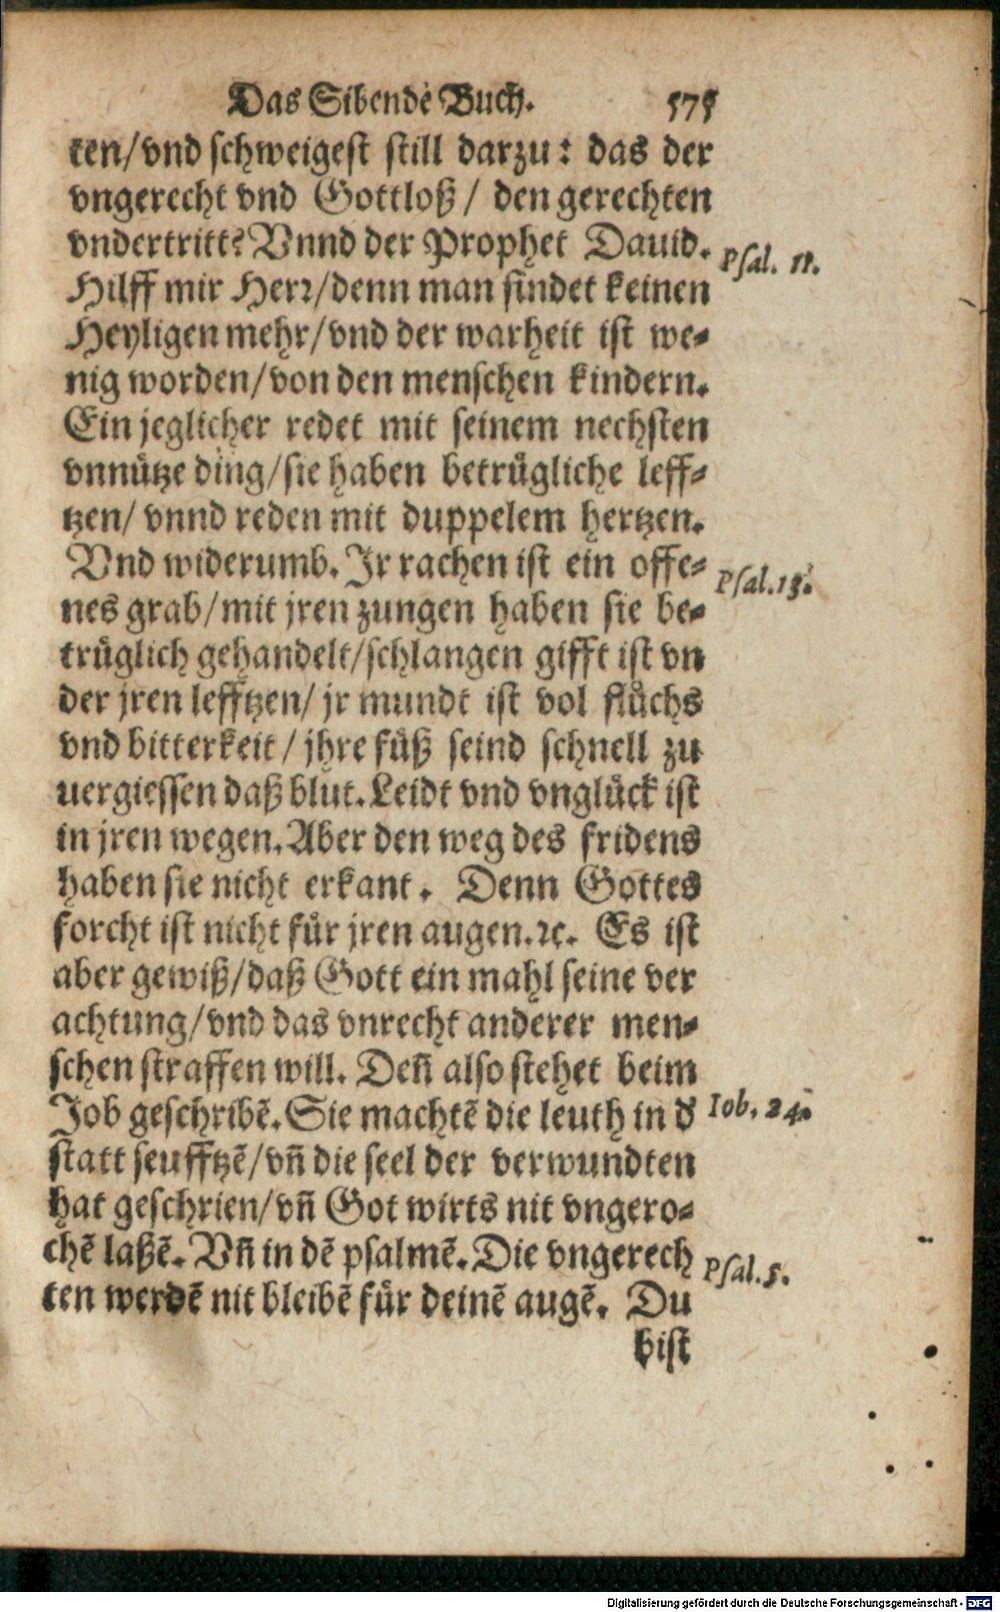 Das Sibendē Buch. 575
ten/vnd schweigest still darzu: das der
vngerecht vnd Gottloß/ den gerechten
vndertritt? Vnnd der Prophet Dauid. Psal. 11.
Hilff mir Herr/denn man findet keinen
Heyligen mehr/vnd der warheit ist we-
nig worden/von den menschen kindern.
Ein jeglicher redet mit seinem nechsten
vnnütze ding/sie haben betrügliche leff-
tzen/ vnnd reden mit duppelem hertzen.
Vnd widerumb. Jr rachen ist ein offe- Psal. 13.
nes grab/mit jren zungen haben sie be-
trüglich gehandelt/schlangen gifft ist vn
der jren lefftzen/ jr mundt ist vol flůchs
vnd bitterkeit/ jhre fůß seind schnell zu
uergiessen daß blut. Leidt vnd vnglůck ist
in jren wegen. Aber den weg des fridens
haben sie nicht erkant. Denn Gottes
forcht ist nicht für jren augen. ꝛc. Es ist
aber gewiß/daß Gott ein mahl seine ver
achtung/vnd das vnrecht anderer men-
schen straffen will. Deñ also stehet beim
Job geschribē. Sie machtē die leuth in d' Iob. 24.
statt seufftzē/vñ die seel der verwundten
hat geschrien/vñ Got wirts nit vngero-
chē laßē. Vñ in dē psalmē. Die vngerech Psal. 5.
ten werdē nit bleibē für deinē augē. Du
bist
Digitalisierung gefördert durch die Deutsche Forschungsgemeinschaft - DFG